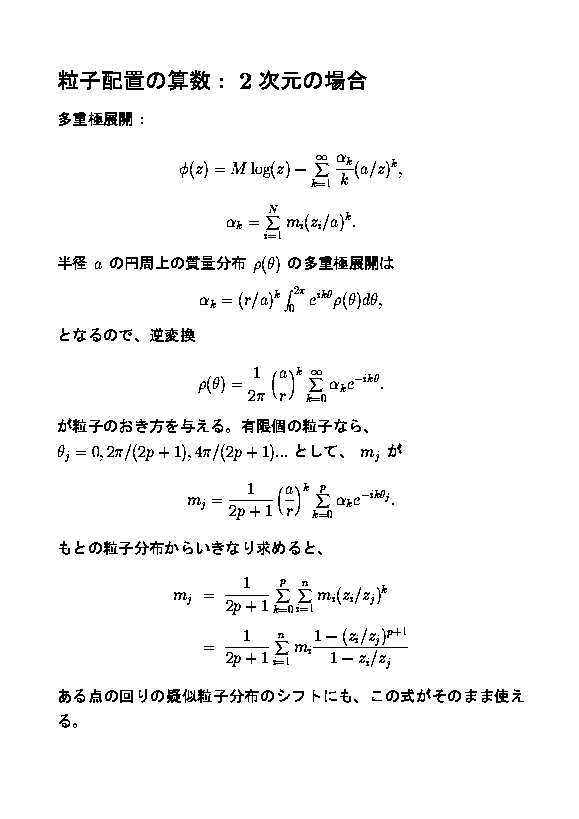 粒子配置の算数： 2 次元の場合
多重極展開：
$$\phi(z) = M \log(z) - \sum_{k=1}^{\infty} \frac{\alpha_k}{k} (a/z)^k,$$
$$\alpha_k = \sum_{i=1}^{N} m_i (z_i/a)^k.$$
半径 $a$ の円周上の質量分布 $\rho(\theta)$ の多重極展開は
$$\alpha_k = (r/a)^k \int_0^{2\pi} e^{ik\theta} \rho(\theta) d\theta,$$
となるので、逆変換
$$\rho(\theta) = \frac{1}{2\pi} \left(\frac{a}{r}\right)^k \sum_{k=0}^{\infty} \alpha_k e^{-ik\theta}.$$
が粒子のおき方を与える。有限個の粒子なら、
$\theta_j = 0, 2\pi/(2p+1), 4\pi/(2p+1)...$ として、 $m_j$ が
$$m_j = \frac{1}{2p+1} \left(\frac{a}{r}\right)^k \sum_{k=0}^{p} \alpha_k e^{-ik\theta_j}.$$
もとの粒子分布からいきなり求めると、
$$m_j = \frac{1}{2p+1} \sum_{k=0}^{p} \sum_{i=1}^{n} m_i (z_i/z_j)^k$$
$$= \frac{1}{2p+1} \sum_{i=1}^{n} m_i \frac{1-(z_i/z_j)^{p+1}}{1-z_i/z_j}$$
ある点の回りの疑似粒子分布のシフトにも、この式がそのまま使え
る。